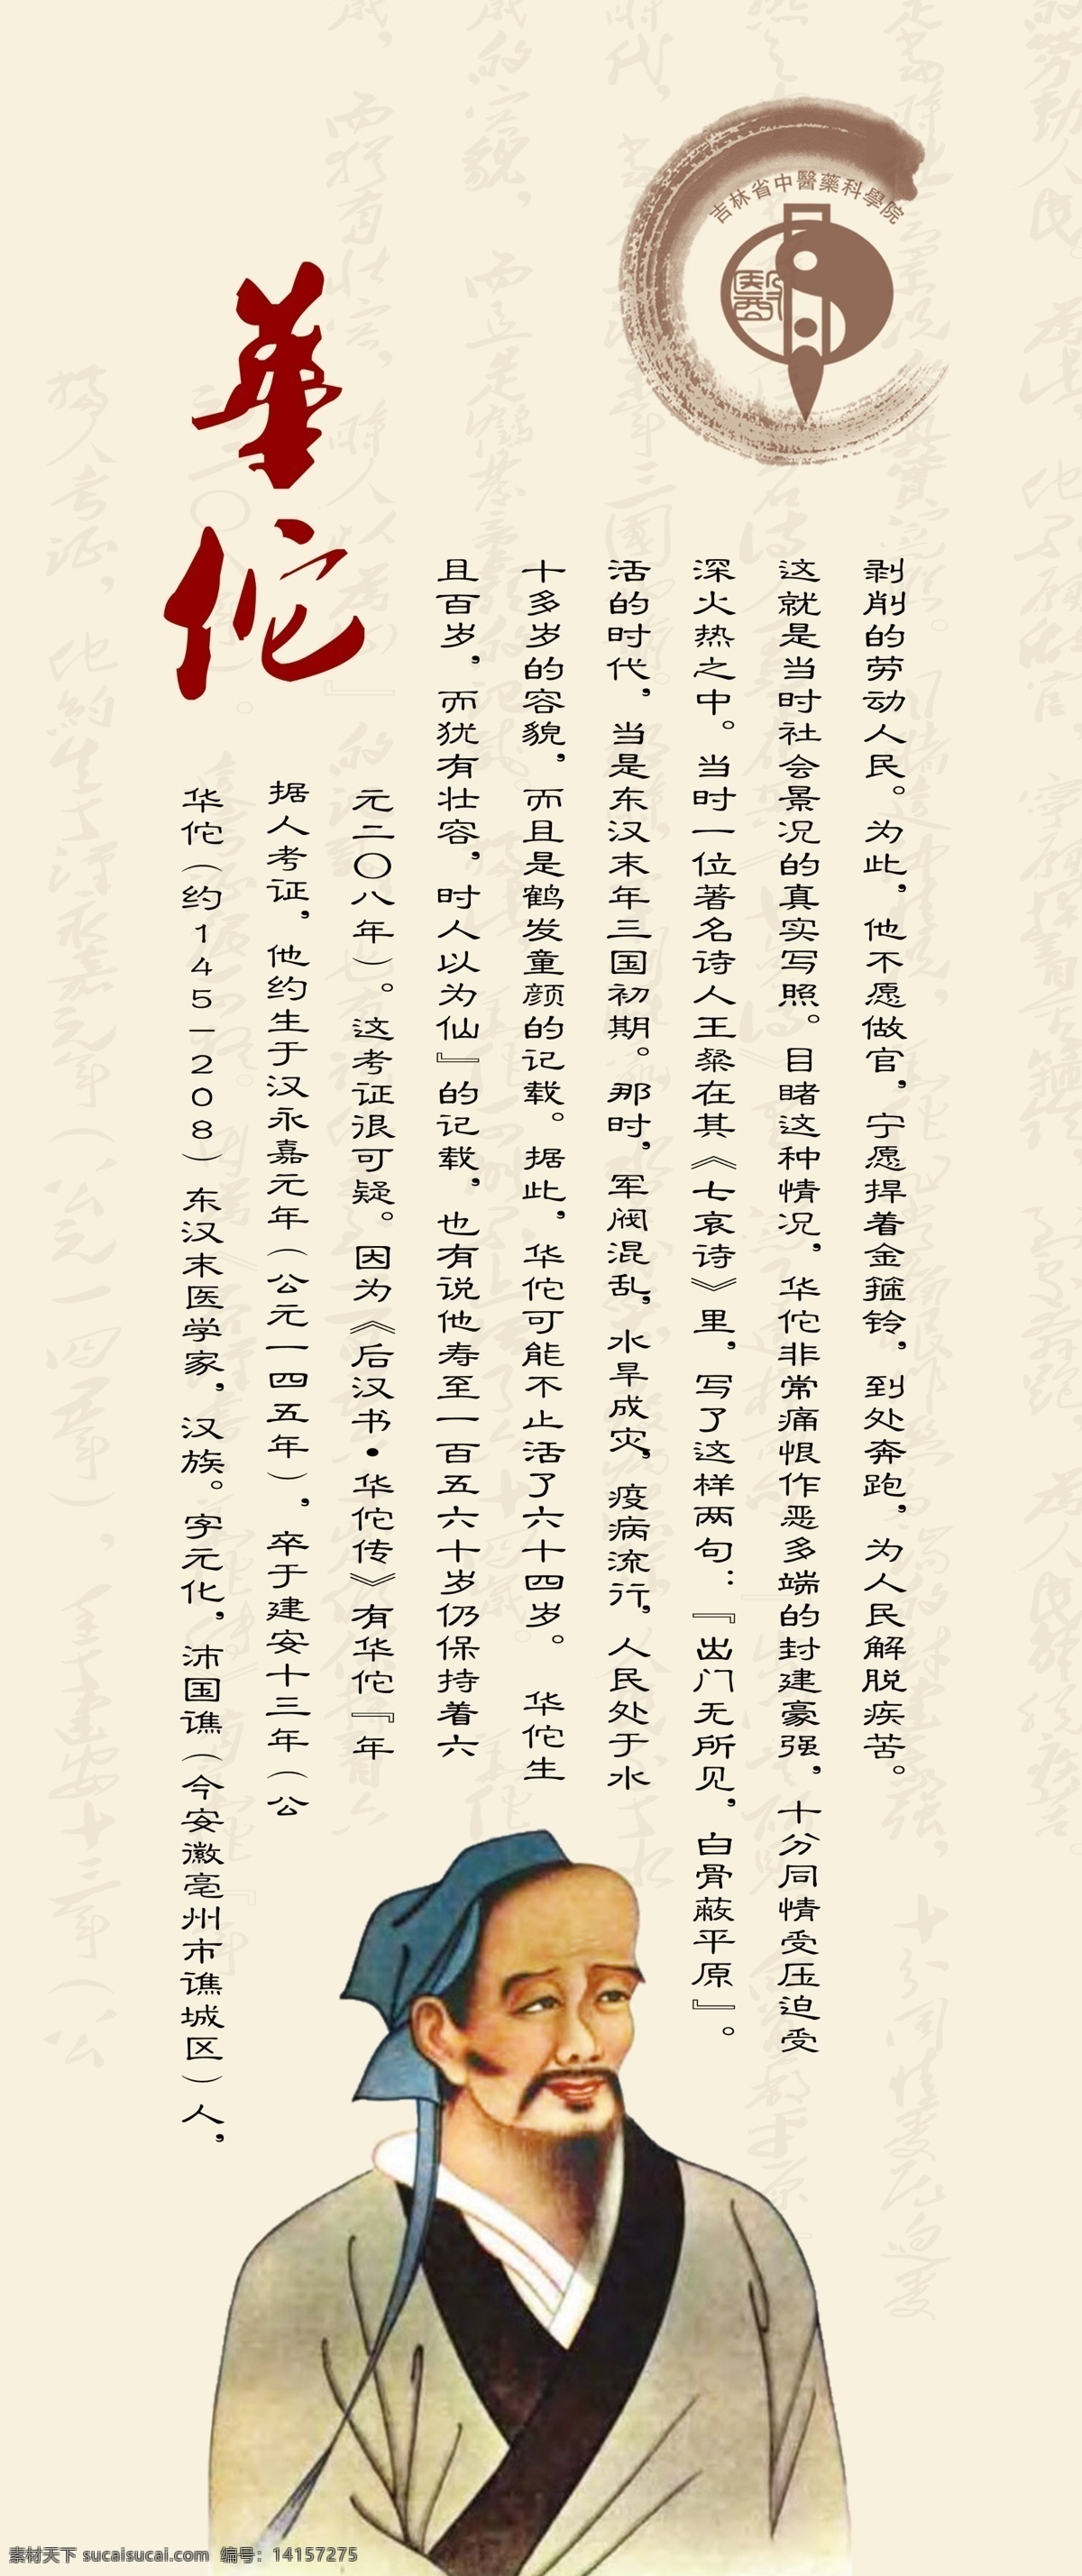 吉林省中醫藥科學院
醫
華佗
华佗（约145—208）东汉末医学家，汉族。字元化，沛国谯（今安徽亳州市谯城区）人，
据人考证，他约生于汉永嘉元年（公元一四五年），卒于建安十三年（公
元二〇八年）。这考证很可疑。因为《后汉书•华佗传》有华佗『年
且百岁，而犹有壮容，时人以为仙』的记载，也有说他寿至一百五六十岁仍保持着六
十多岁的容貌，而且是鹤发童颜的记载。据此，华佗可能不止活了六十四岁。 华佗生
活的时代，当是东汉末年三国初期。那时，军阀混乱，水旱成灾，疫病流行，人民处于水
深火热之中。当时一位著名诗人王粲在其《七哀诗》里，写了这样两句：『出门无所见，白骨蔽平原』。
这就是当时社会景况的真实写照。目睹这种情况，华佗非常痛恨作恶多端的封建豪强，十分同情受压迫受
剥削的劳动人民。为此，他不愿做官，宁愿捍着金箍铃，到处奔跑，为人民解脱疾苦。
素材天下 sucaisucai.com 编号：14157275